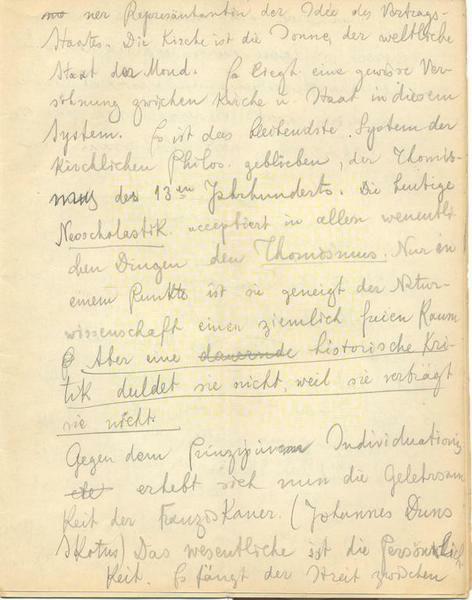 ner Repräsäntantin der Idee des Vertrags-
Staates. Die Kirche ist die Sonne, der weltliche
Staat der Mond. Es liegt eine gewisse Ver-
söhnung zwischen Kirche u. Staat in diesem
System. Es ist das bleibendste System der
Kirchlichen Philos. geblieben, der Thomis-
mus des 13ten Jahrhunderts. Die heutige
Neoscholastik acceptiert in allen wesentli
chen Dingen den Thomismus. Nur in
einem Punkte ist sie geneigt der Natur-
wissenschaft einen ziemlich freien Raum
Aber eine dauernde historische Kri-
tik duldet sie nicht, weil sie verträgt
sie nicht.
Gegen dem Prinzipium Individuationis
erhebt sich nun die Gelehrsam
Keit der FranzisKaner. (Johannes Duns
SKotus) Das wesentliche ist die Persönlich
Keit. Es fängt der Streit zwischen